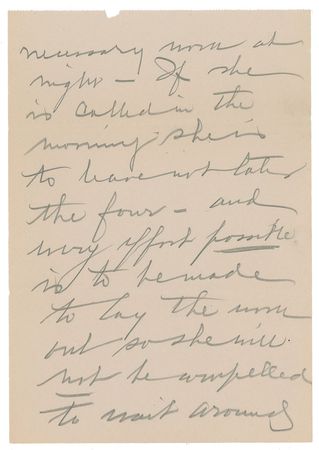 necessary work at
night – If she
is called in the
morning she is
to leave not later
the four – and
every effort possible
is to be made
to lay the work
out so she will
not be compelled
to wait around